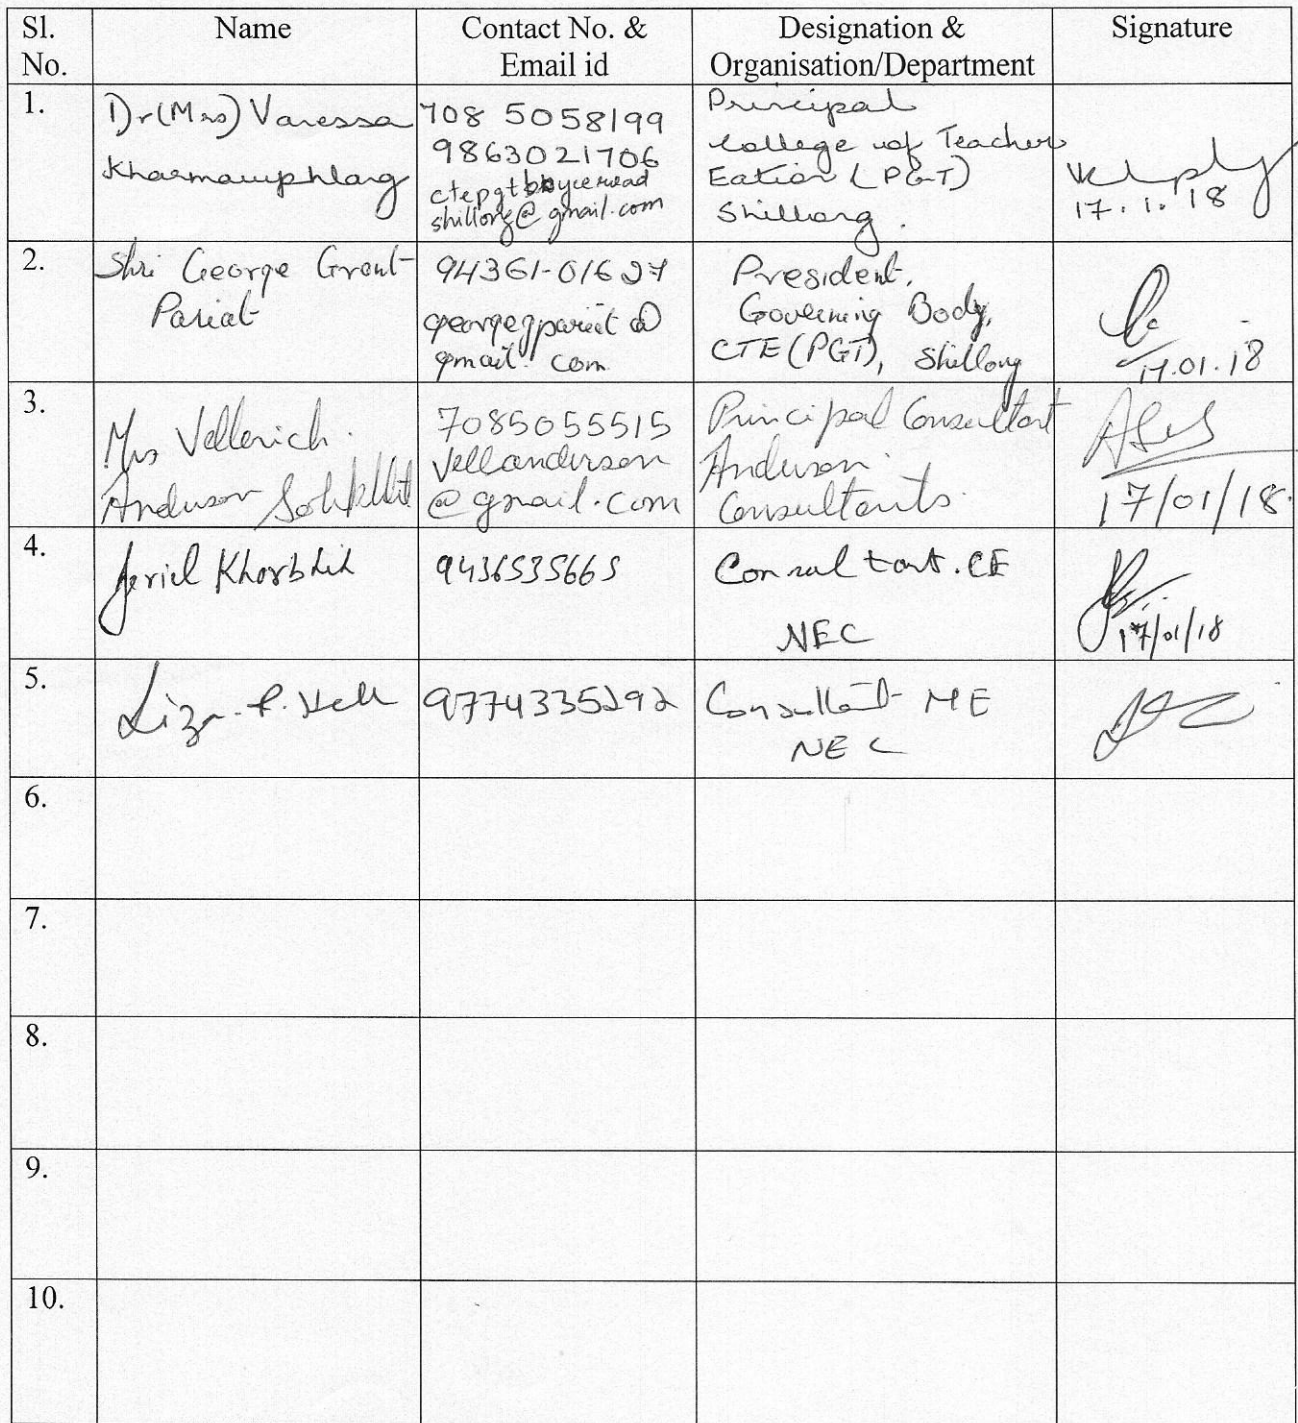 Sl. No.
Name
Contact No. & Email id
Designation & Organisation/Department
Signature
1.
Dr(Mrs) Vanessa
Kharmawphlang
708 5058199
9863026
shillong@gmail.com
Principal
College of Teacher
Eation (PGT)
Shillong.
17.1.18
2.
Shri George Grant
Pariat
94361-01627
georgegpariat@
gmail.com
President,
Governing Body,
CTE (PGT), Shillong
17.01.18
3.
Mrs Vellerich.
Anderson
7085055515
Vellanderson
@gmail.com
Principal Consultant
Anderson
Consultants.
17/01/18.
4.
Jeriel
9436535665
Consultant.CE
NEC
17/01/18
5.
Liza
9774335292
Consultant ME
NEC
6.
7.
8.
9.
10.